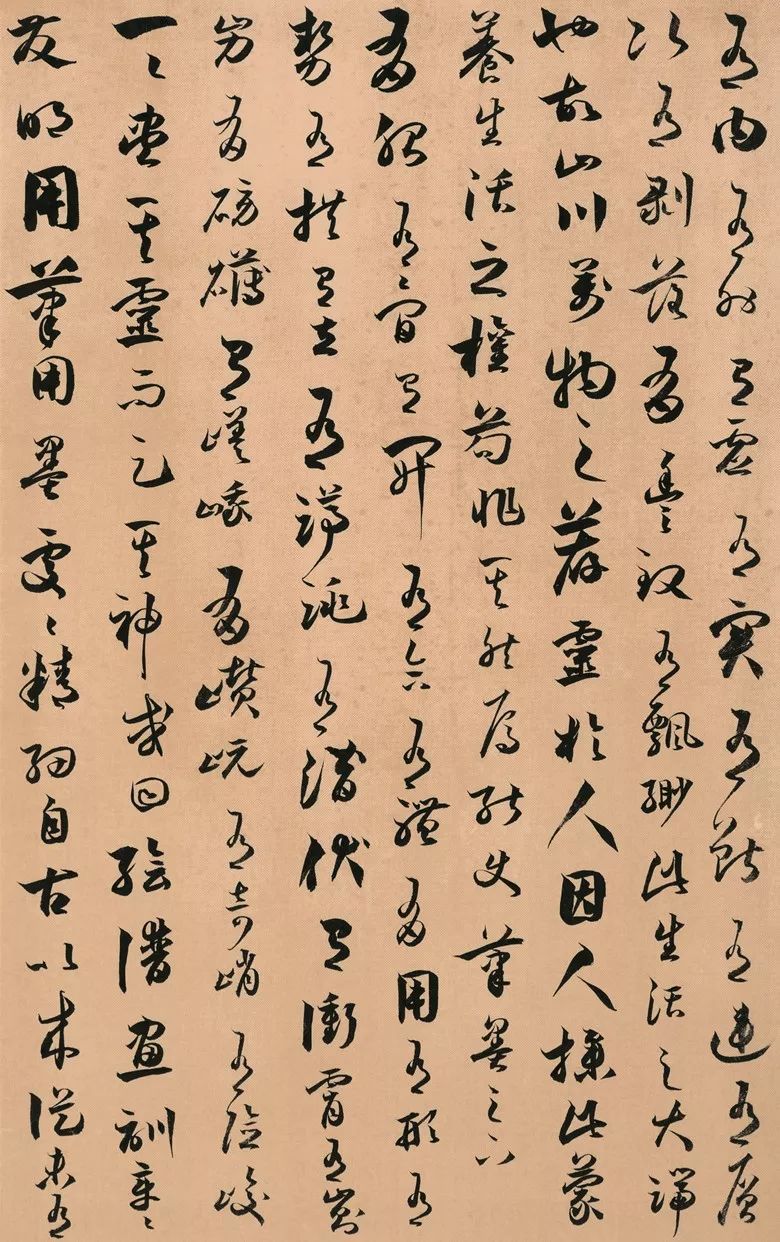 有內有外有虛有實有斷有連有層
次有剝落有豐致有飄緲此生活之大端
也故山川萬物之薦靈於人因人操此蒙
養生活之權苟非其然焉能使筆墨之下
有胎有骨有開有合有體有用有形有
勢有拱有立有蹲跳有潛伏有衝霄有崱
屴有磅礴有嵯峨有巑岏有奇峭有險峻
一一盡其靈而足其神或曰繪譜畫訓章章
發明用筆用墨處處精細自古以來從未有